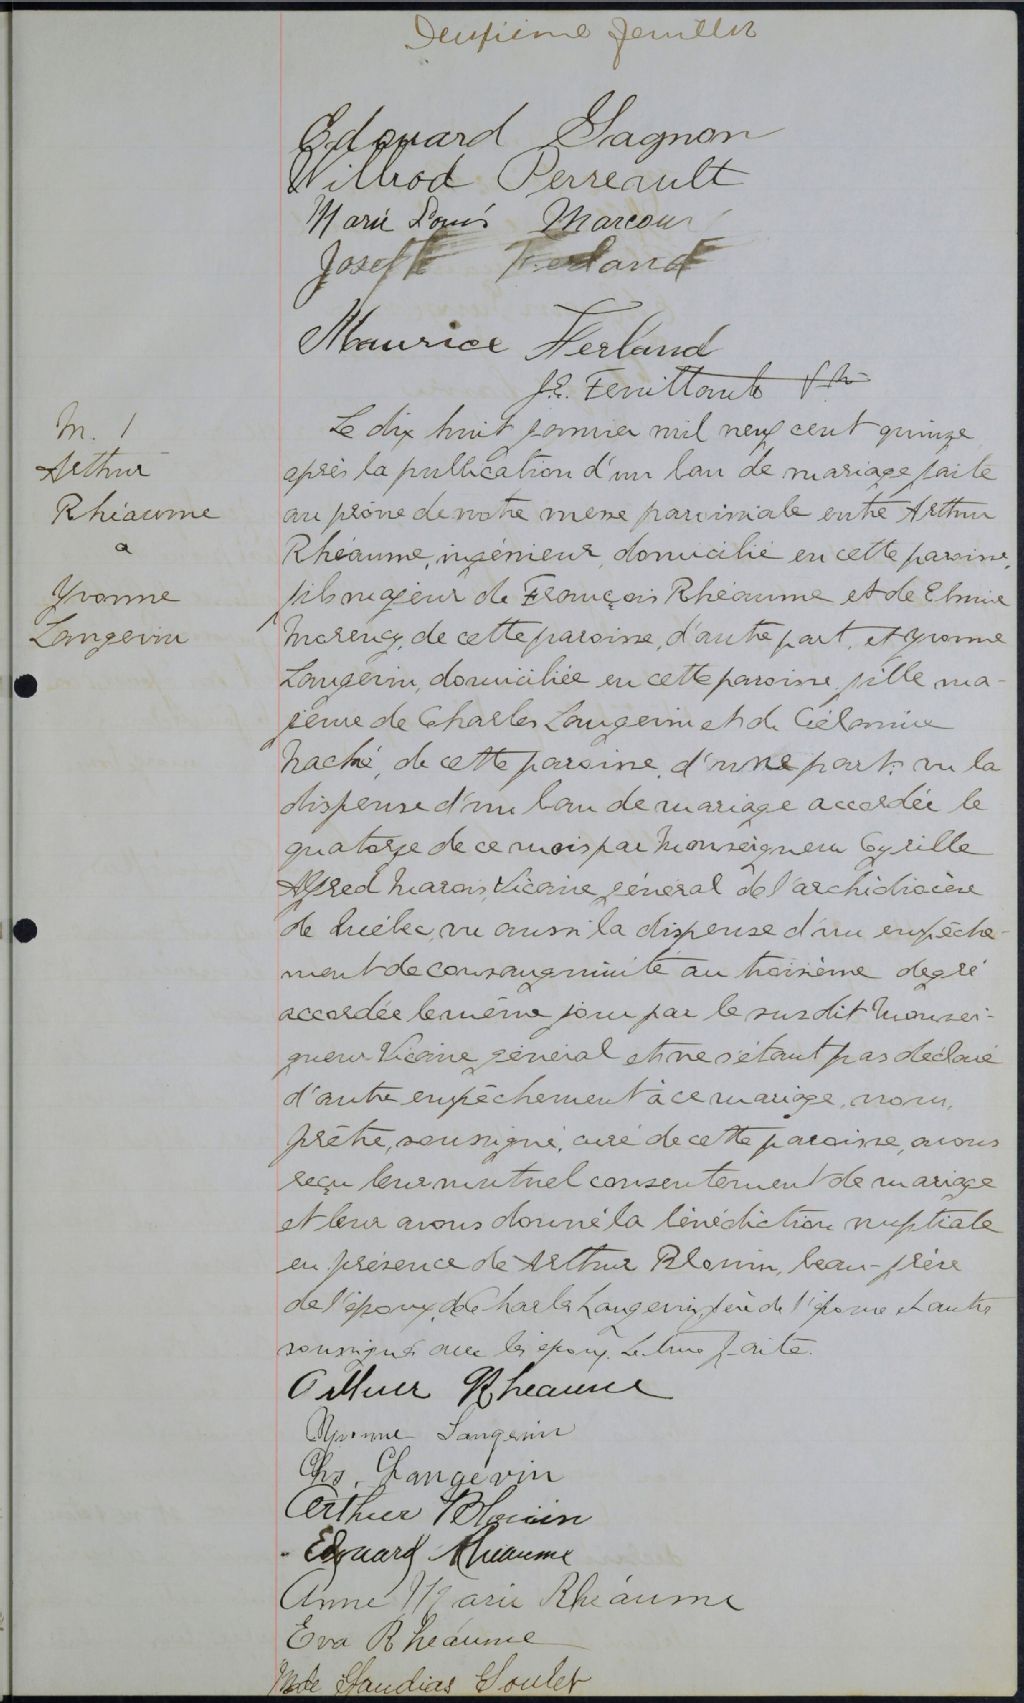 Deuxième feuillet
Edouard Gagnon
Wilbrod Perreault
Marie Louis Marcoux
Joseph Ferland
Maurice Ferland
J.E. Feuiltault Ptre
M. 1
Arthur
Rhéaume
&
Yvonne
Langevin
Le dix huit janvier mil neuf cent quinze
après la publication d'un ban de mariage faite
au prône de notre messe paroissiale entre Arthur
Rhéaume, ingénieur, domicilié en cette paroisse,
fils majeur de François Rhéaume et de Elmire
Marency, de cette paroisse, d'autre part, et Yvonne
Langevin, domiciliée en cette paroisse, fille ma-
jeure de Charles Langevin et de Célamire
Haché, de cette paroisse, d'une part; vu la
dispense d'un ban de mariage accordée le
quatorze de ce mois par Monseigneur Cyrille
Alfred Marois, Vicaire général de l'archidiocèse
de Québec, vu aussi la dispense d'un empêche-
ment de consanguinité au troisième degré
accordée le même jour par le susdit Monsei-
gneur Vicaire général et ne s'étant pas déclaré
d'autre empêchement à ce mariage, nous,
prêtre, soussigné, curé de cette paroisse, avons
reçu leur mutuel consentement de mariage
et leur avons donné la bénédiction nuptiale
en présence de Arthur Blouin, beau-frère
de l'époux, de Charles Langevin, père de l'épouse et autres
soussignés avec les époux. Lecture faite.
Arthur Rheaume
Yvonne Langevin
Chs. Langevin
Arthur Blouin
Edouard Rheaume
Anne Marie Rhéaume
Eva Rhéaume
Mde Glaudias Goulet